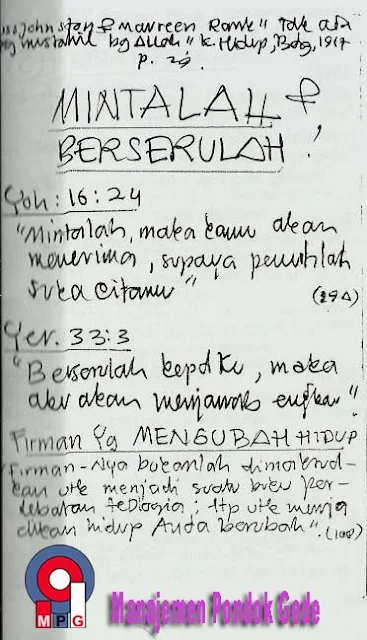 john stan & maureen Rowe" Tak ada
yg mustahil bg Allah" K. Hidup, Bdg, 1987
p. 29.
MINTALAH &
BERSERULAH!
Yoh: 16:24
"Mintalah, maka kamu akan
menerima, supaya penuhlah
suka citamu"
(29 A)
Yer. 33:3
"Berserulah kepdKu, maka
aku akan menjawab engkau"!
Firman Yg MENGUBAH HIDUP
"Firman-Nya bukanlah dimaksud-
kan utk menjadi suatu buku per-
debatan teologia; ttp utk menja
dikan hidup Anda berubah".
MPG
Manajemen Pondok Gede